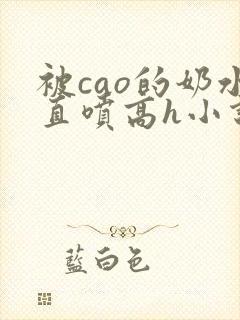 被cao的奶水
直喷高h小
藍白色